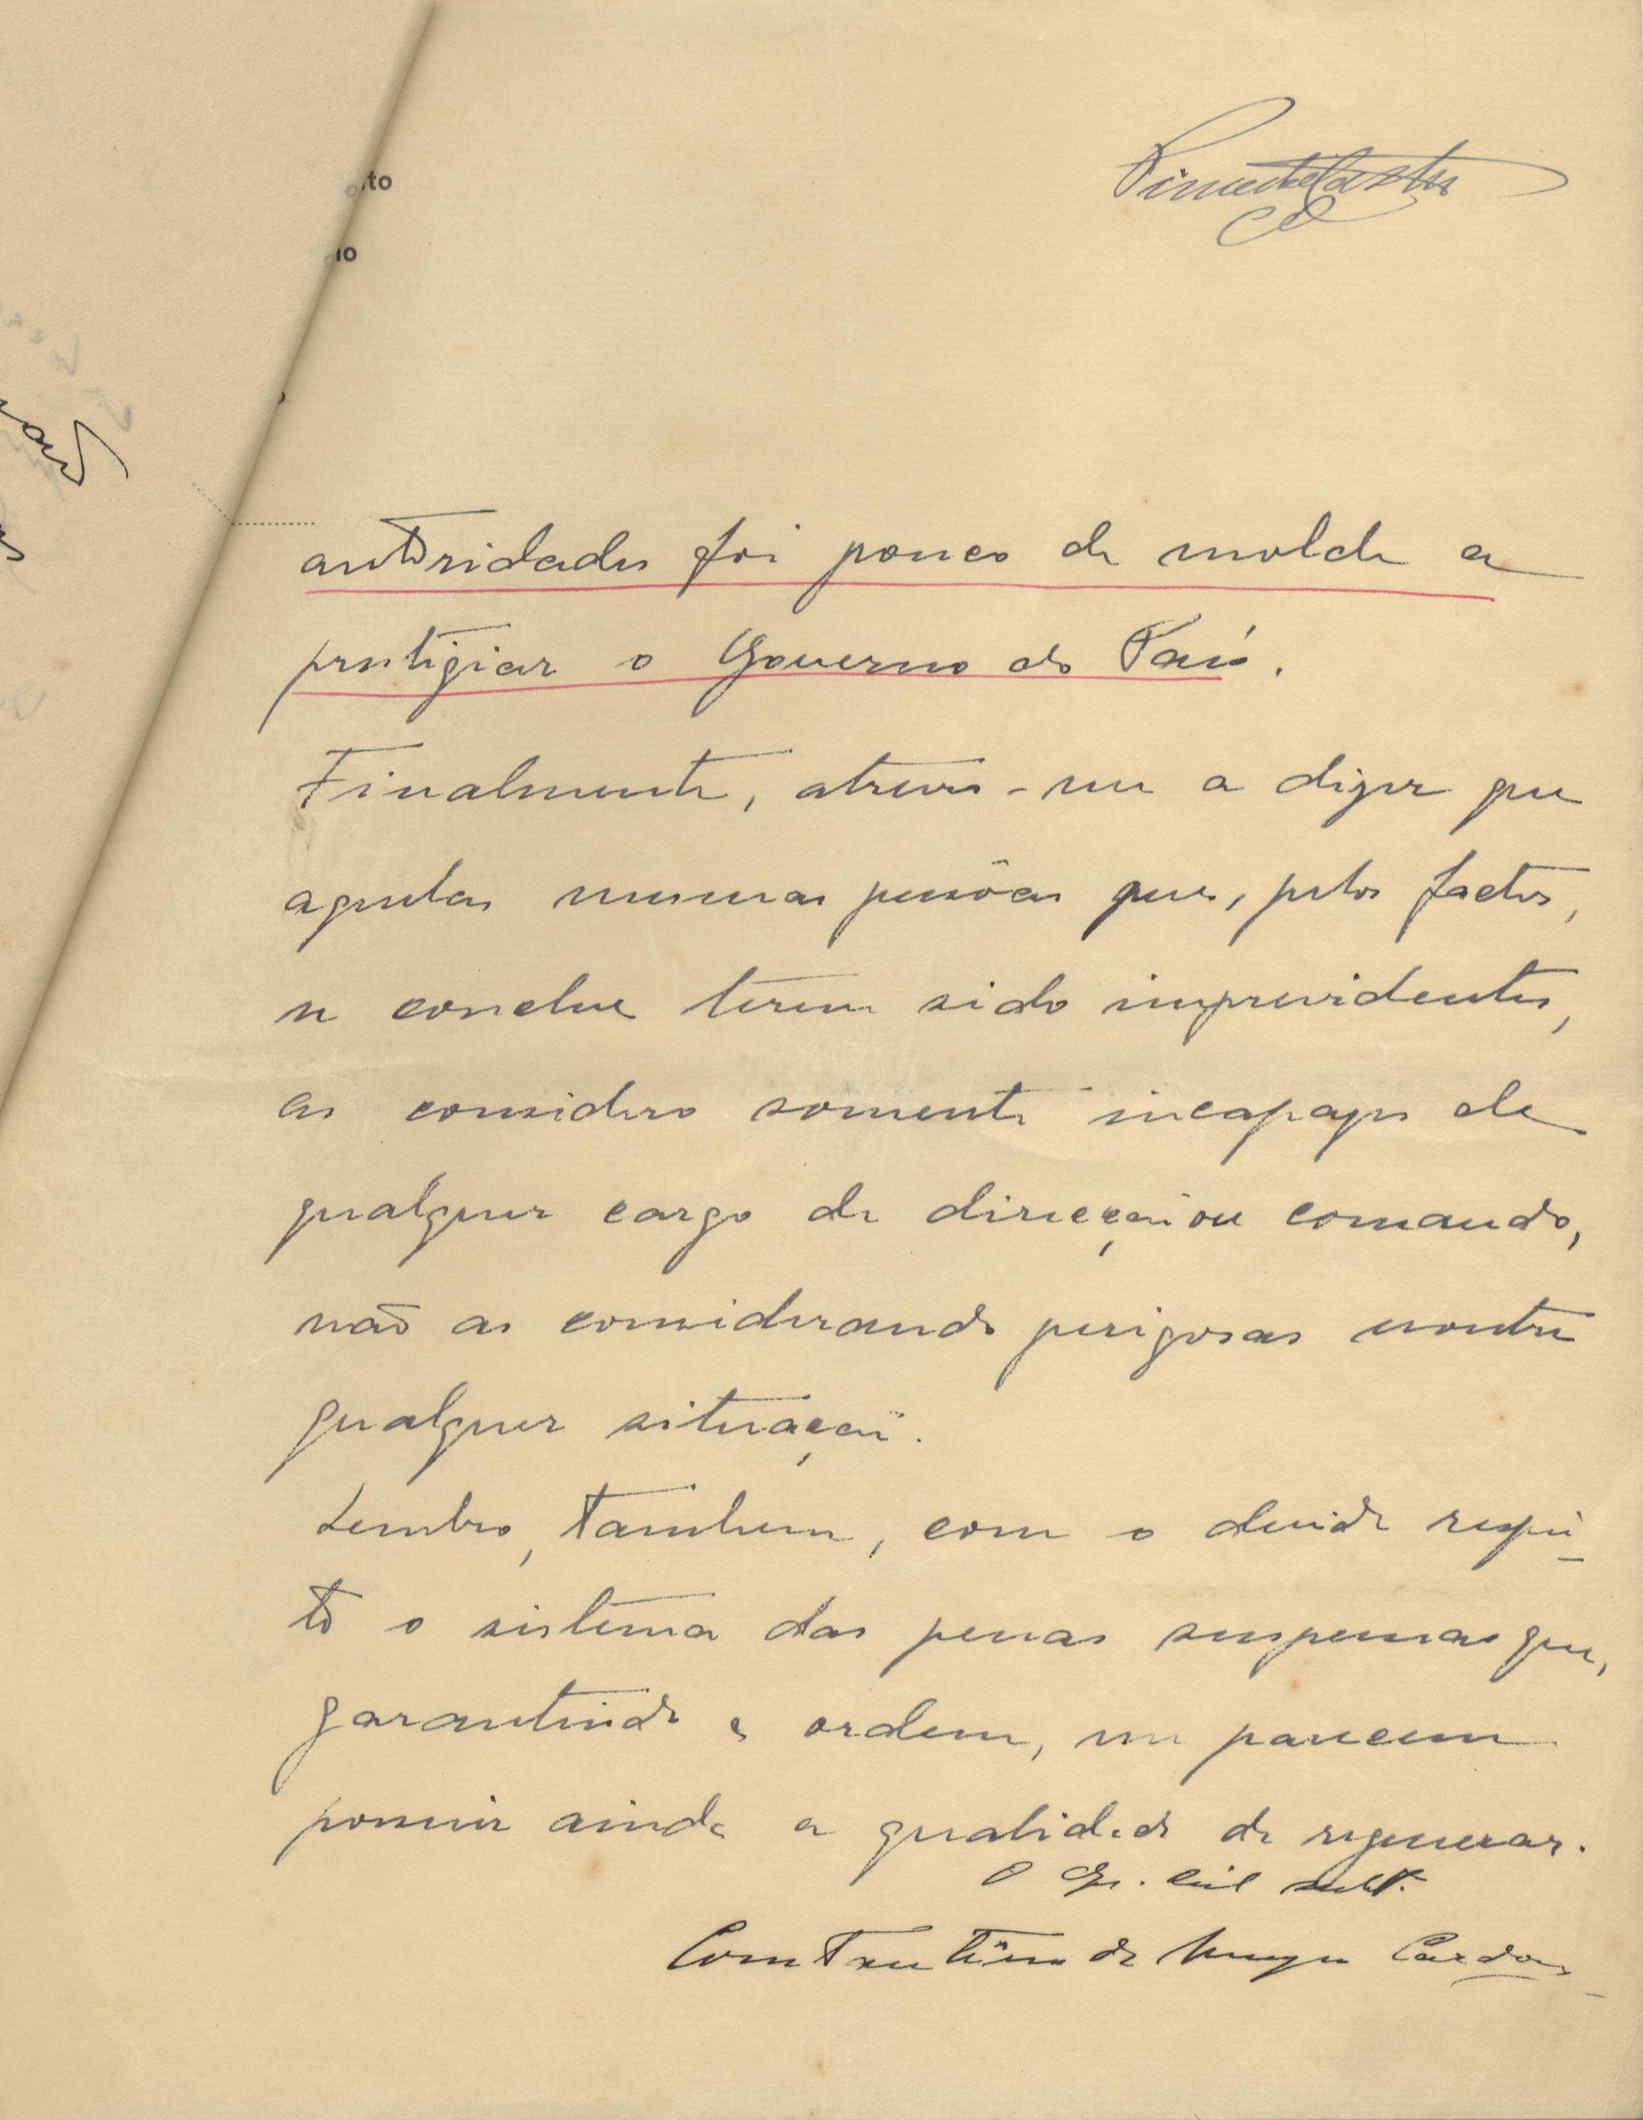 to
io
autoridades foi pouco de molde a
prestigiar o Governo do País.
Finalmente, atrevo-me a dizer que
aquelas mesmas pessôas que, pelos factos,
se conclue terem sido imprevidentes,
as considero somente incapazes de
qualquer cargo de direcção ou comando,
não as considerando perigosas contra
qualquer situação.
Lembro, tambem, com o devido respei-
to o sistema das penas suspensas que,
garantindo a ordem, me parecem
possuir ainda a qualidade de regenerar.
O civil subt.
Constantino de Cardoso